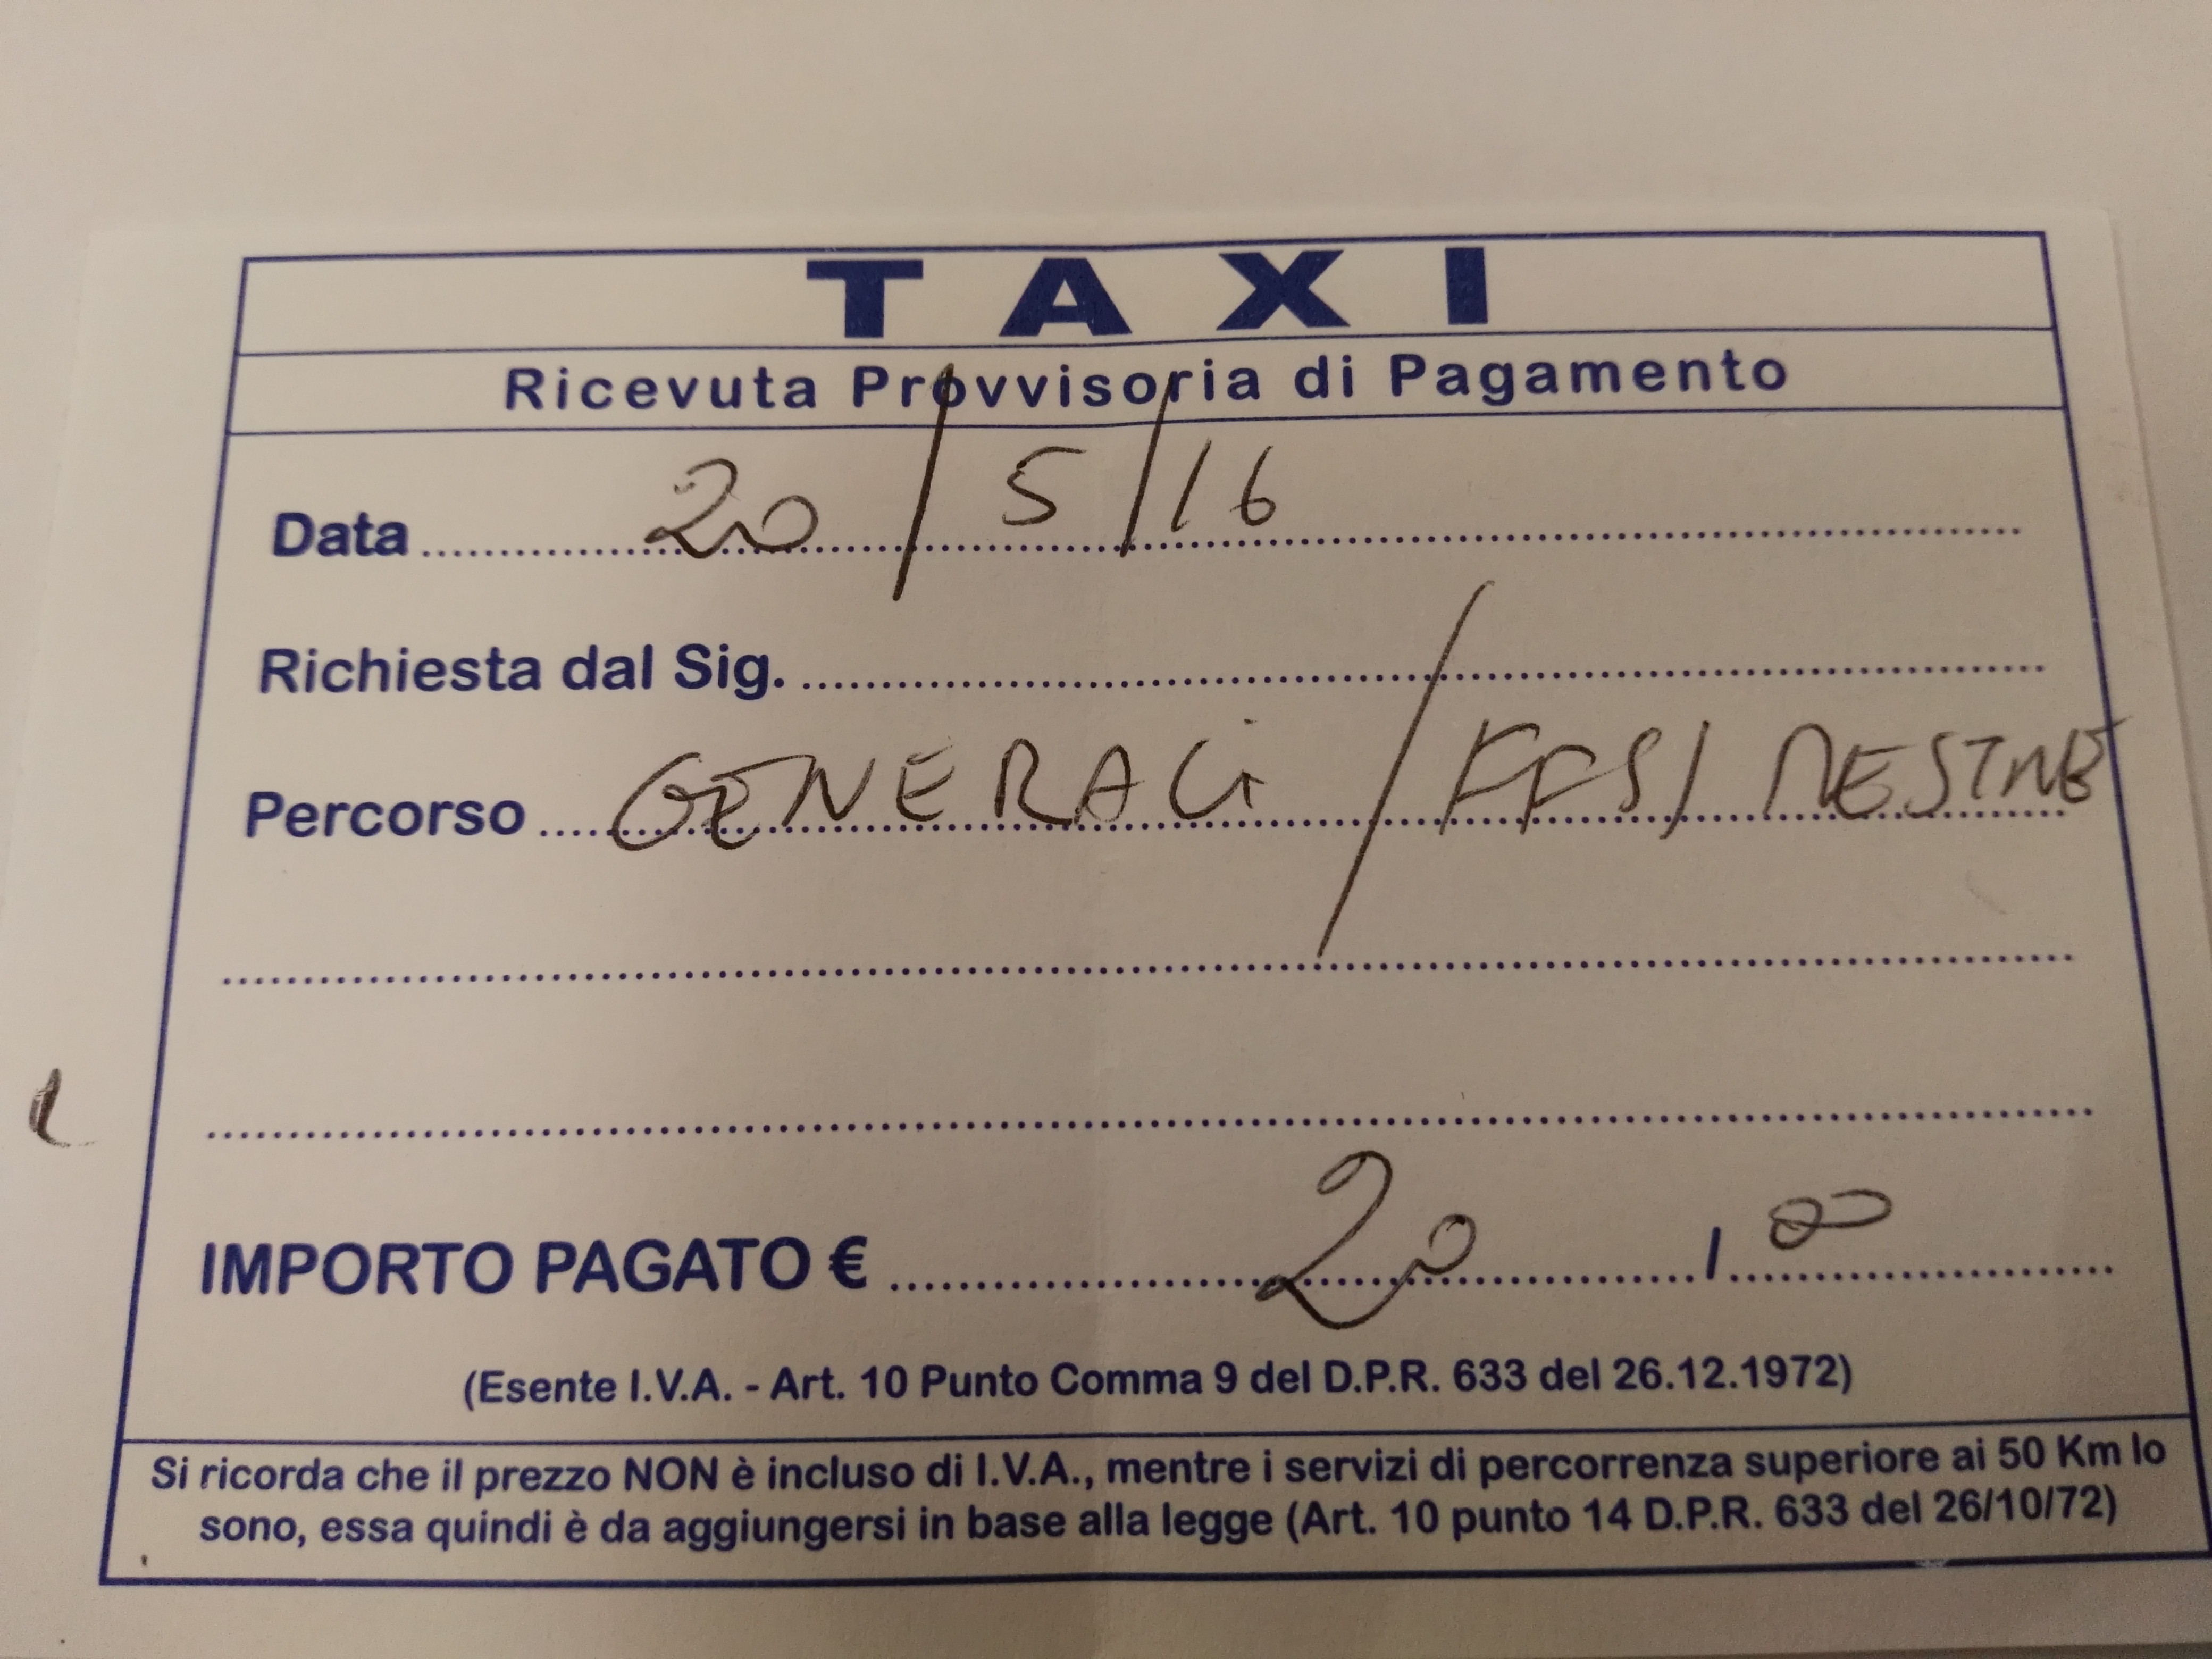 TAXI
Ricevuta Provvisoria di Pagamento
Data 20/5/16
Richiesta dal Sig.
Percorso GENERALI / FFSS/ MESTRE
IMPORTO PAGATO € 20,00
(Esente I.V.A. - Art. 10 Punto Comma 9 del D.P.R. 633 del 26.12.1972)
Si ricorda che il prezzo NON è incluso di I.V.A., mentre i servizi di percorrenza superiore ai 50 Km lo
sono, essa quindi è da aggiungersi in base alla legge (Art. 10 punto 14 D.P.R. 633 del 26/10/72)